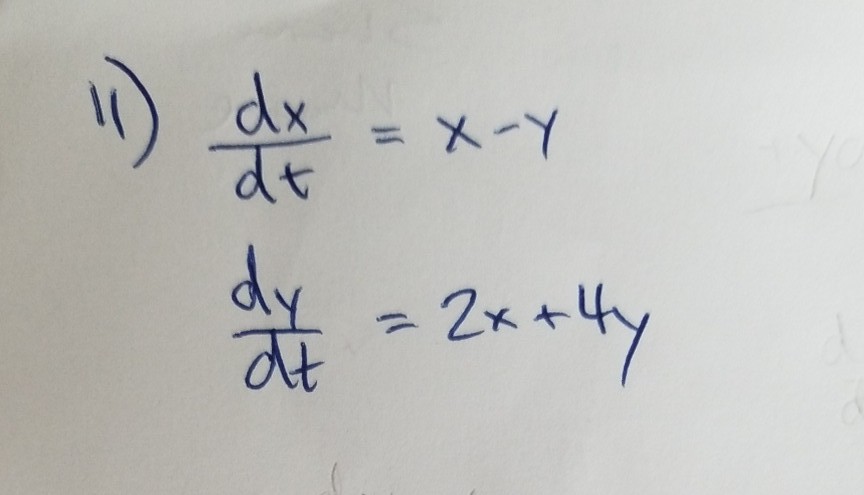 11) dx/dt = x-y
dy/dt = 2x+4y